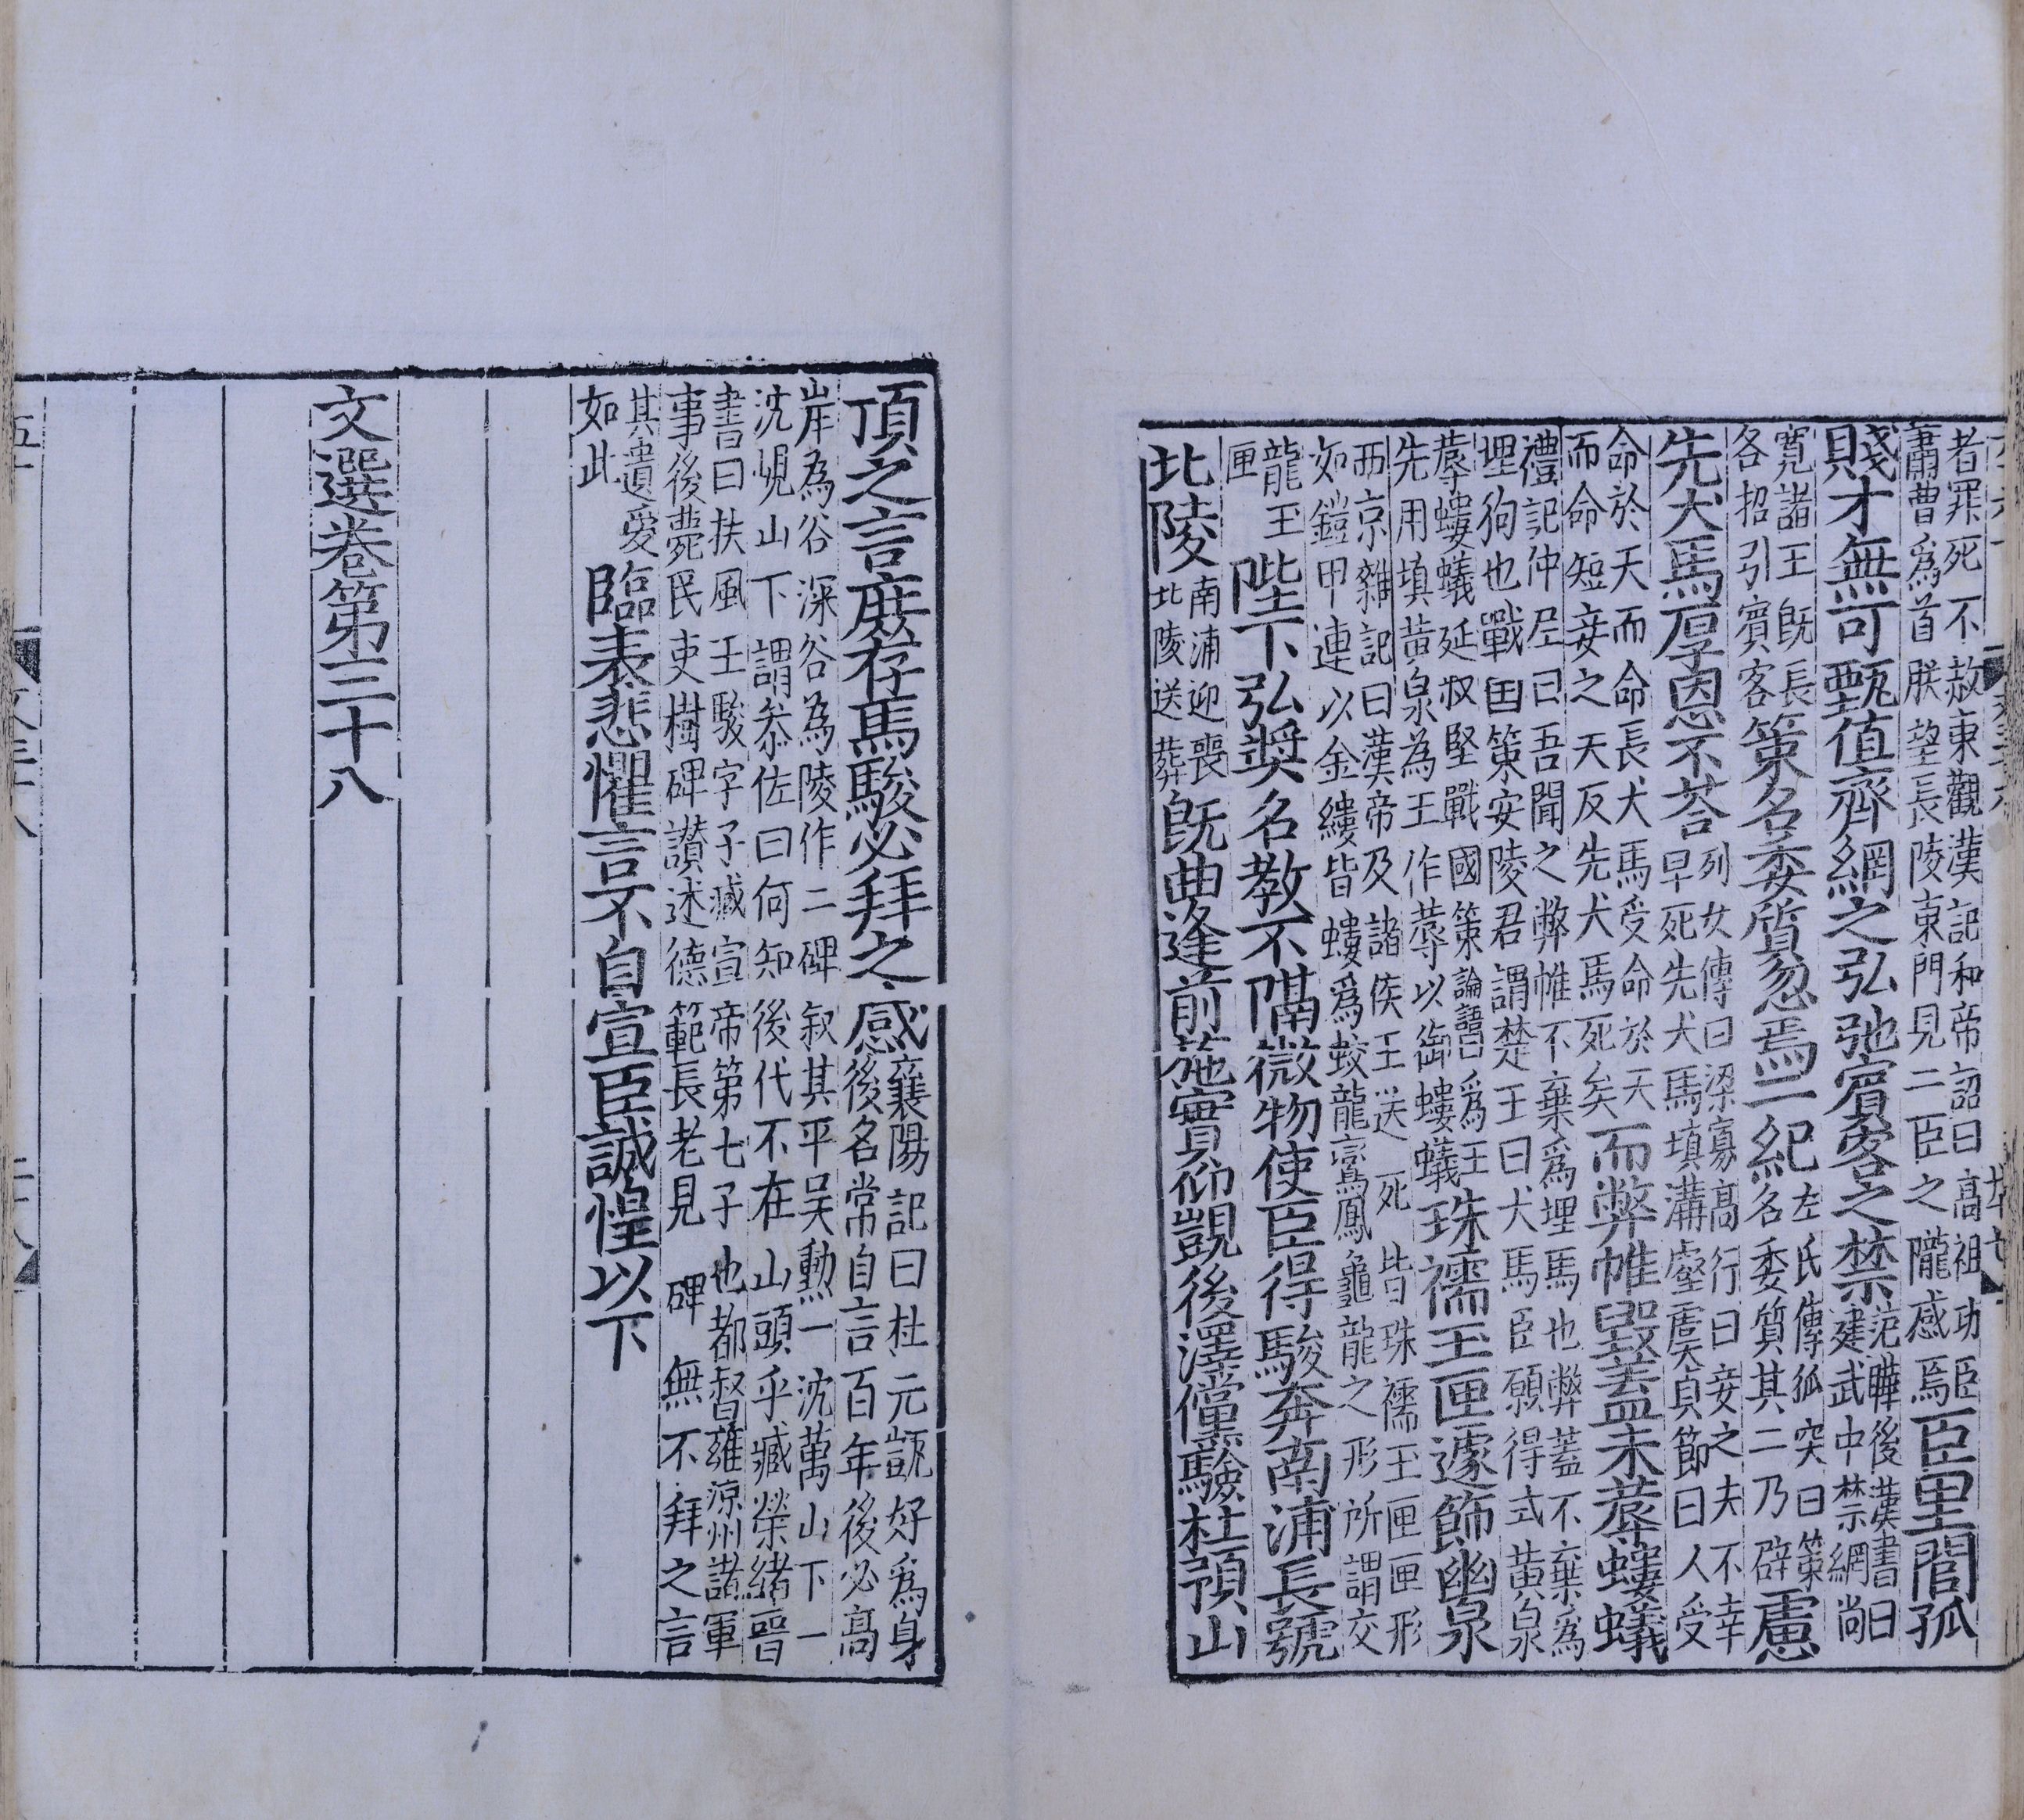 者罪死不赦東觀漢記和帝詔曰高祖功臣
蕭曹爲首朕望長陵東門見二臣之隴感焉
臣里閭孤
賤才無可甄值齊網之弘弛賓客之禁
范曄後漢書曰
建武中禁網尚
寛諸王既長
各招引賓客
策名委質忽焉二紀
左氏傳狐突曰策
名委質其二乃辟
慮
先犬馬厚恩不荅
列女傳曰梁寡高行曰妾之夫不幸
早死先犬馬填溝壑虞貞節曰人受
命於天而命長犬馬受命於天
而命短妾之天反先犬馬死矣
而弊帷毀蓋未蓐螻蟻
禮記仲尼曰吾聞之弊帷不棄爲埋馬也弊蓋不棄爲
埋狗也戰国策安陵君謂楚王曰犬馬臣願得式黄泉
蓐螻蟻延叔堅戰國策論語曰爲王
先用填黄泉為王作蓐以御螻蟻
珠襦玉匣遽飾幽泉
西京雜記曰漢帝及諸侯王送死皆珠襦玉匣匣形
如鎧甲連以金縷皆螻爲蛟龍鸞鳳龜龍之形所謂交
龍玉
匣
陛下弘奬名教不隔微物使臣得駿奔南浦長號
北陵
南浦迎喪
北陵送葬
既曲逢前施實仰覬後澤儻驗杜預山
頂之言庶存馬駿必拜之感
襄陽記曰杜元凱好爲身
後名常自言百年後必高
岸為谷深谷為陵作二碑叙其平吴勳一沈萬山下一
沈峴山下謂叅佐曰何知後代不在山頭乎臧榮緒晉
書曰扶風王駿字子臧宣帝第七子也都督雍涼州諸軍
事後薨民吏樹碑讃述德範長老見碑無不拜之言
其遺愛
如此
臨表悲懼言不自宣臣誠惶以下
文選卷第三十八